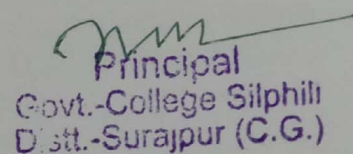 Principal
Govt.-College Silphili
Distt.-Surajpur (C.G.)